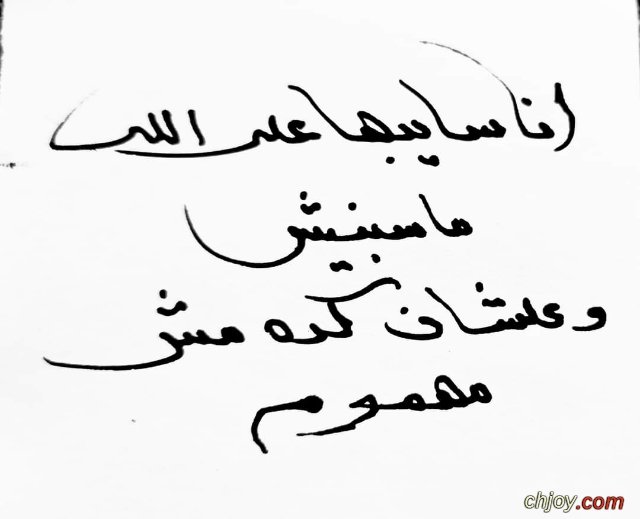 انا سايبها على الله
ماسبنيش
وعلشان كده مش
مهموم
chjoy.com